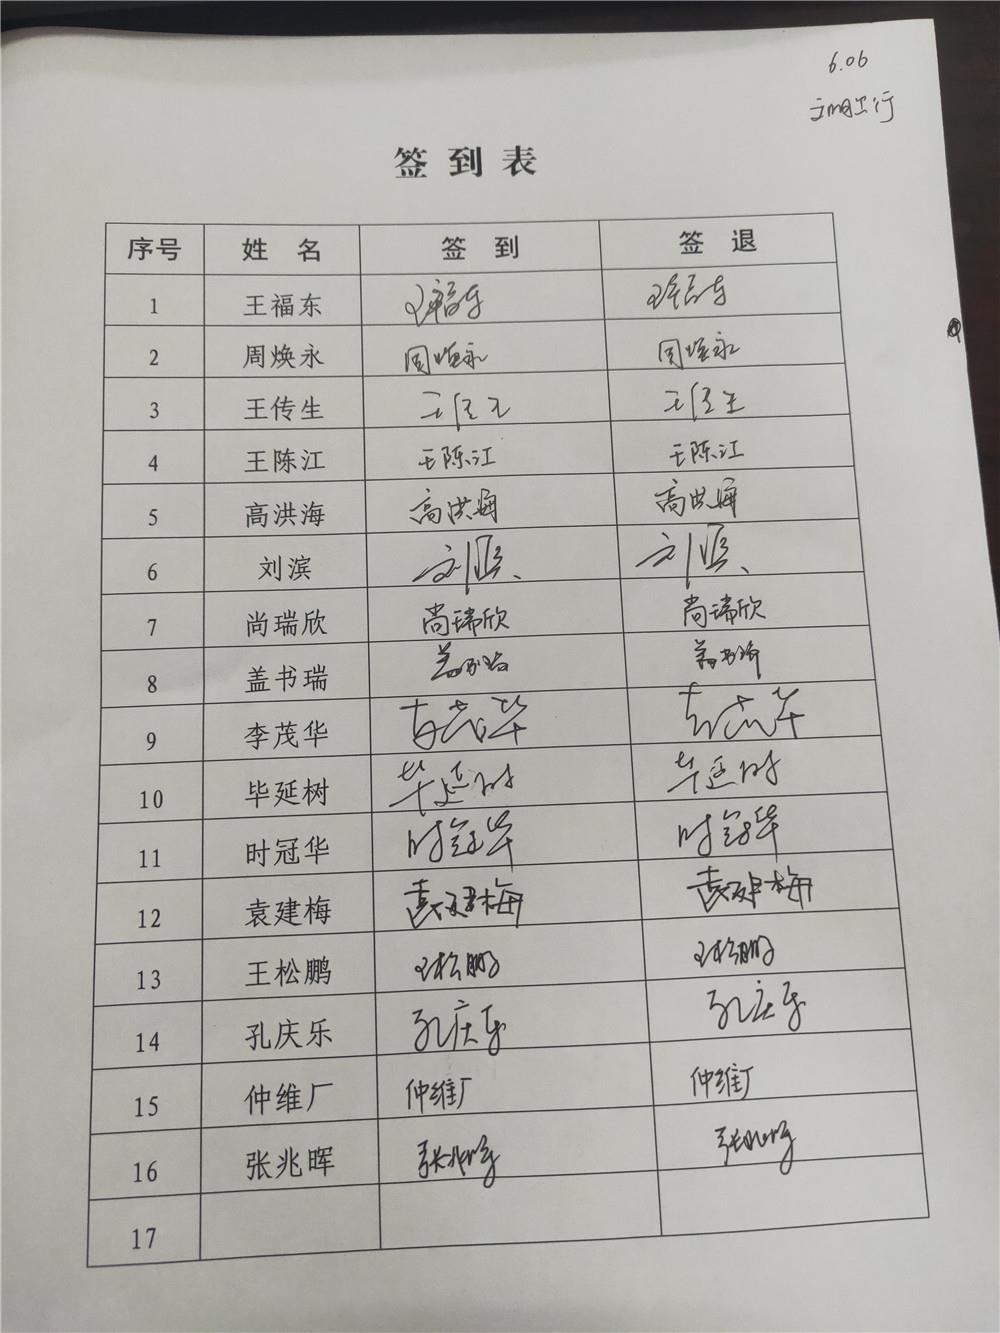 6.06
文明出行
签到表
序号 姓名 签到 签退
1 王福东 王福东 王福东
2 周焕永 周焕永 周焕永
3 王传生 王传生 王传生
4 王陈江 王陈江 王陈江
5 高洪海 高洪海 高洪海
6 刘滨 刘滨 刘滨
7 尚瑞欣 尚瑞欣 尚瑞欣
8 盖书瑞 盖书瑞 盖书瑞
9 李茂华 李茂华 李茂华
10 毕延树 毕延树 毕延树
11 时冠华 时冠华 时冠华
12 袁建梅 袁建梅 袁建梅
13 王松鹏 王松鹏 王松鹏
14 孔庆乐 孔庆乐 孔庆乐
15 仲维厂 仲维厂 仲维厂
16 张兆晖 张兆晖 张兆晖
17